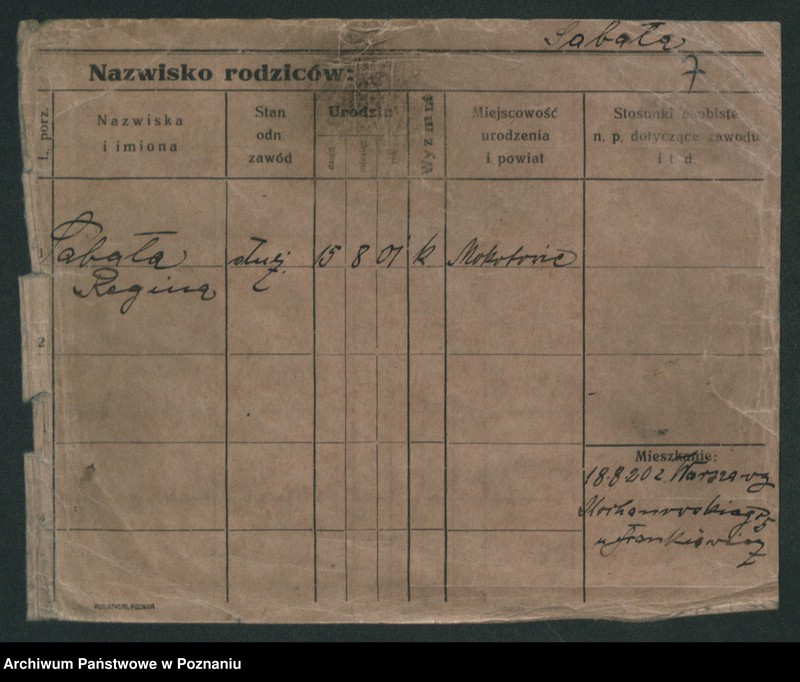 Sabała
Nazwisko rodziców: 7
L. porz. Nazwiska i imiona Stan odn. zawód Urodzin dzień miesiąc rok Wyznanie Miejscowość urodzenia i powiat Stosunki osobiste n. p. dotyczące zawodu i t. d.
1 Sabała służ. 15 8 01 k. Mokotovie
Regina
2
Mieszkanie:
18.8.20 z Warszawy
Kochanowskiego 5
u Frankiewicz
Archiwum Państwowe w Poznaniu